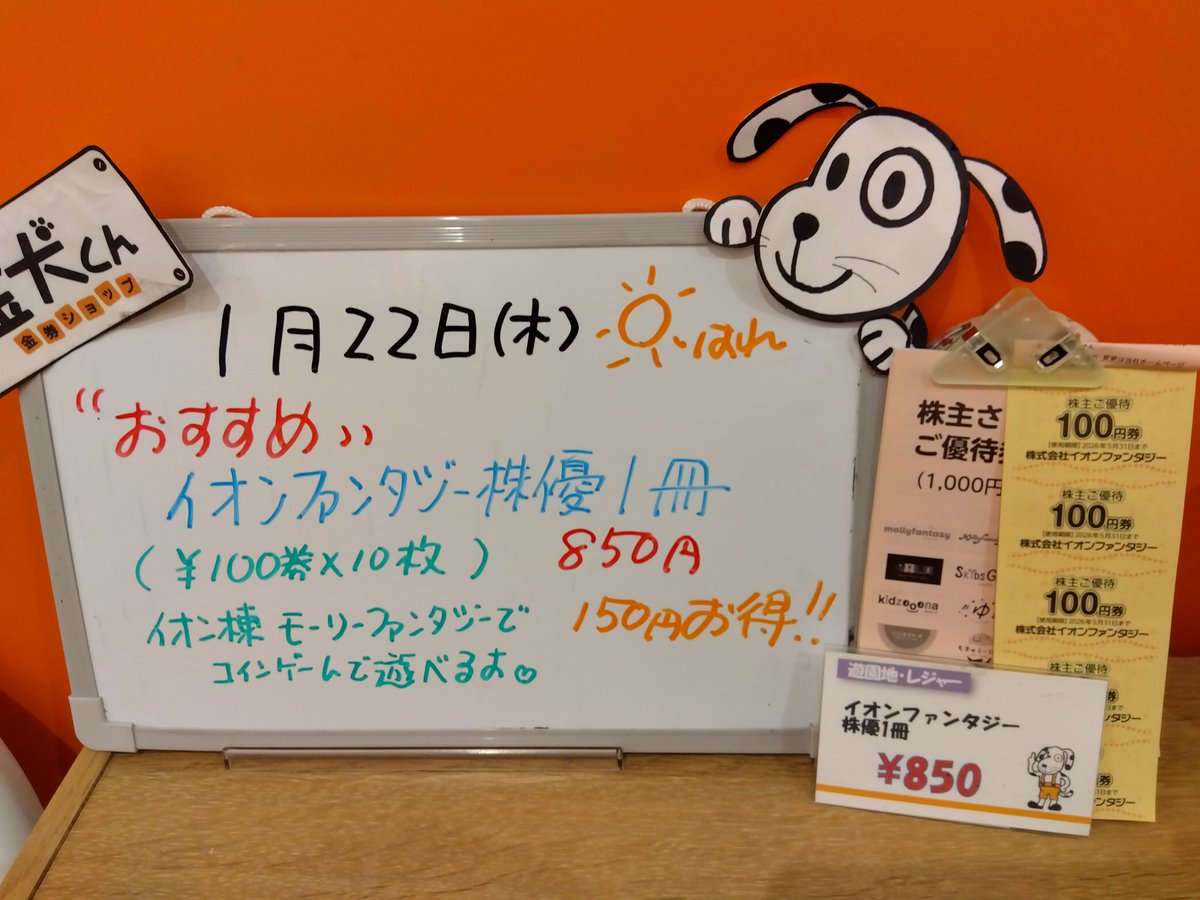 犬くん
金券ショップ
1月22日(木) はれ
"おすすめ"
イオンファンタジー株優1冊
(¥100券×10枚) 850円
イオン棟 モーリーファンタジーで
コインゲームで遊べるよ
150円お得!!
株主さ
ご優待券
(1,000円
mollyfantasy
kidzooona
変更は当社ホームページ
株主ご優待
100円券
[使用期限]2026年5月31日まで
株式会社イオンファンタジー
株主ご優待
100円券
[使用期限]2026年5月31日まで
株式会社イオンファンタジー
株主ご優待
100円券
[使用期限]2026年5月31日まで
株式会社イオンファンタジー
株主ご優待
遊園地・レジャー
イオンファンタジー
株優1冊
¥850